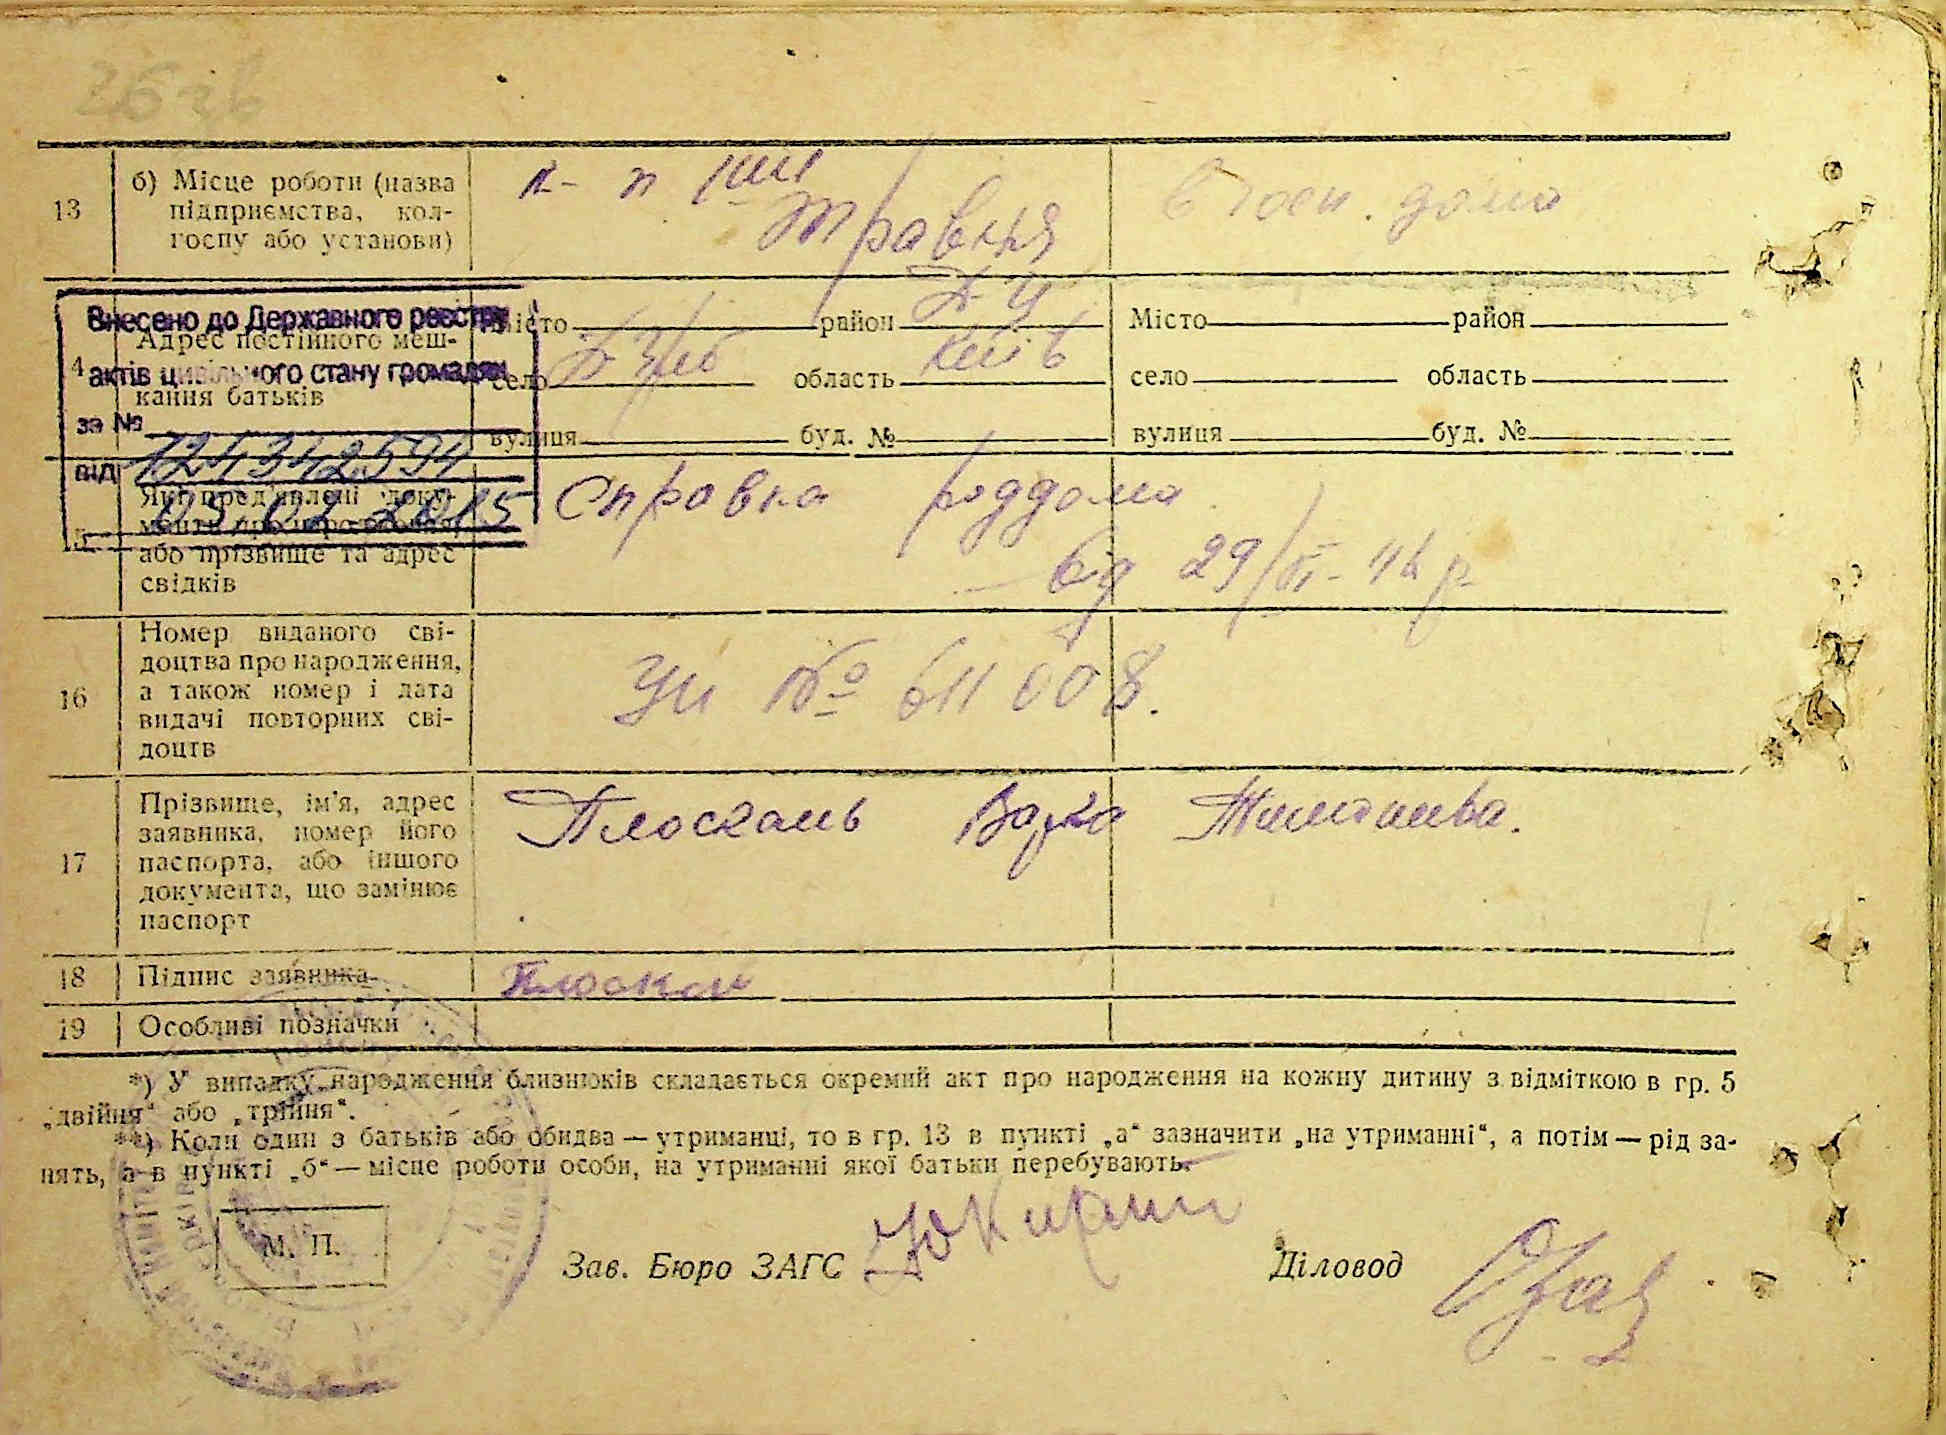 13
б) Місце роботи (назва
підприємства, кол-
госпу або установи)
к- п 1ші
травня
дома
Внесено до Державного реєстру
актів цивільного стану громадян
за № 124342594
від 09 02 2015
4
Адрес постійного меш-
кання батьків
Місто район
село область Київ
вулиця буд. №
Місто район
село область
вулиця буд. №
5
Які пред'явлені доку-
менти про народження
або прізвище та адрес
свідків
Справка роддома
від 29/VI- 41 р.
16
Номер виданого сві-
доцтва про народження,
а також номер і дата
видачі повторних сві-
доцтв
№ 611008.
17
Прізвище, ім'я, адрес
заявника, номер його
паспорта, або іншого
документа, що замінює
паспорт
Плоскань Варка
18
Підпис заявника
19
Особливі позначки
*) У випадку народження близнюків складається окремий акт про народження на кожну дитину з відміткою в гр. 5
„двійня“ або „трійня“.
**) Коли один з батьків або обидва — утриманці, то в гр. 13 в пункті „а“ зазначити „на утриманні“, а потім — рід за-
нять, а в пункті „б“ — місце роботи особи, на утриманні якої батьки перебувають.
М. П.
Зав. Бюро ЗАГС
Діловод